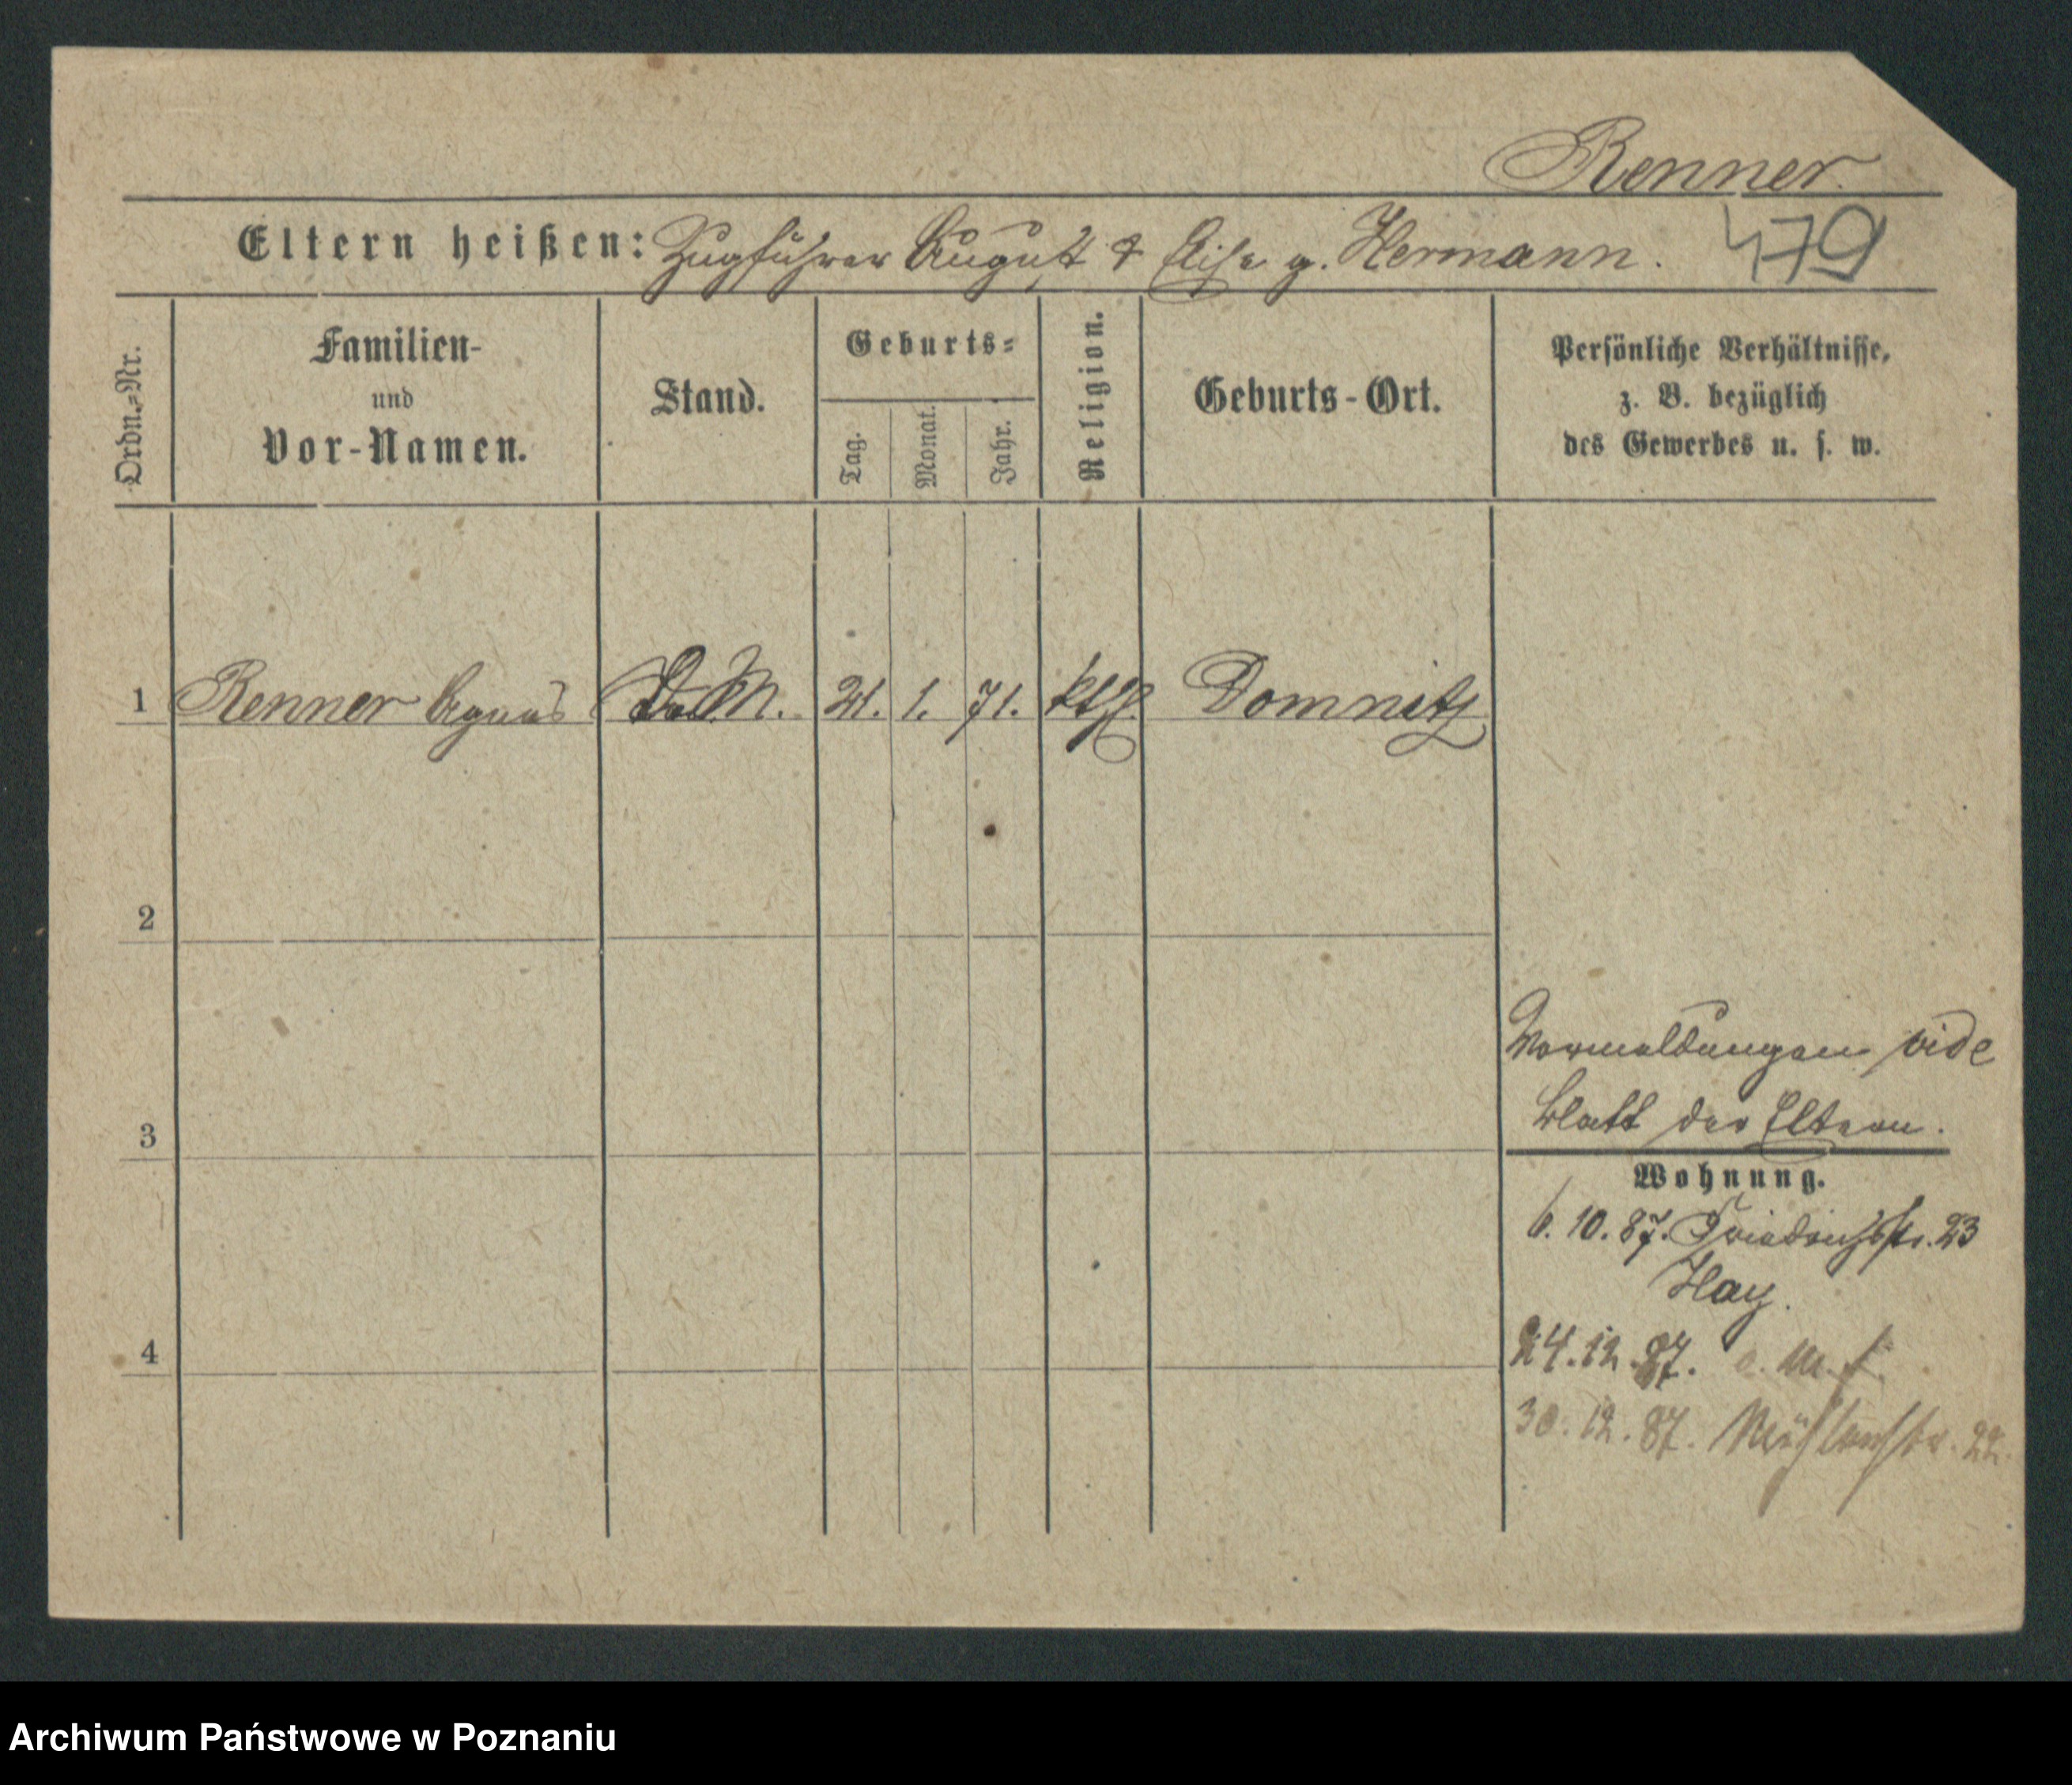 Renner.
Eltern heißen: Zugführer August & Elise g. Hermann. 479
Ordn.-Nr.
Familien-
und
Vor-Namen.
Stand.
Geburts-
Tag.
Monat.
Jahr.
Religion.
Geburts-Ort.
Persönliche Verhältnisse,
z. B. bezüglich
des Gewerbes u. s. w.
1 Renner Agnes D. M. 21. 1. 71. kth. Domnitz
2
Vormeldungen vide
3 Blatt der Eltern.
Wohnung.
6. 10. 87. Friedrichstr. 23
Hay.
4 24. 12. 87.
30. 12. 87. Mühlenstr. 22.
Archiwum Państwowe w Poznaniu